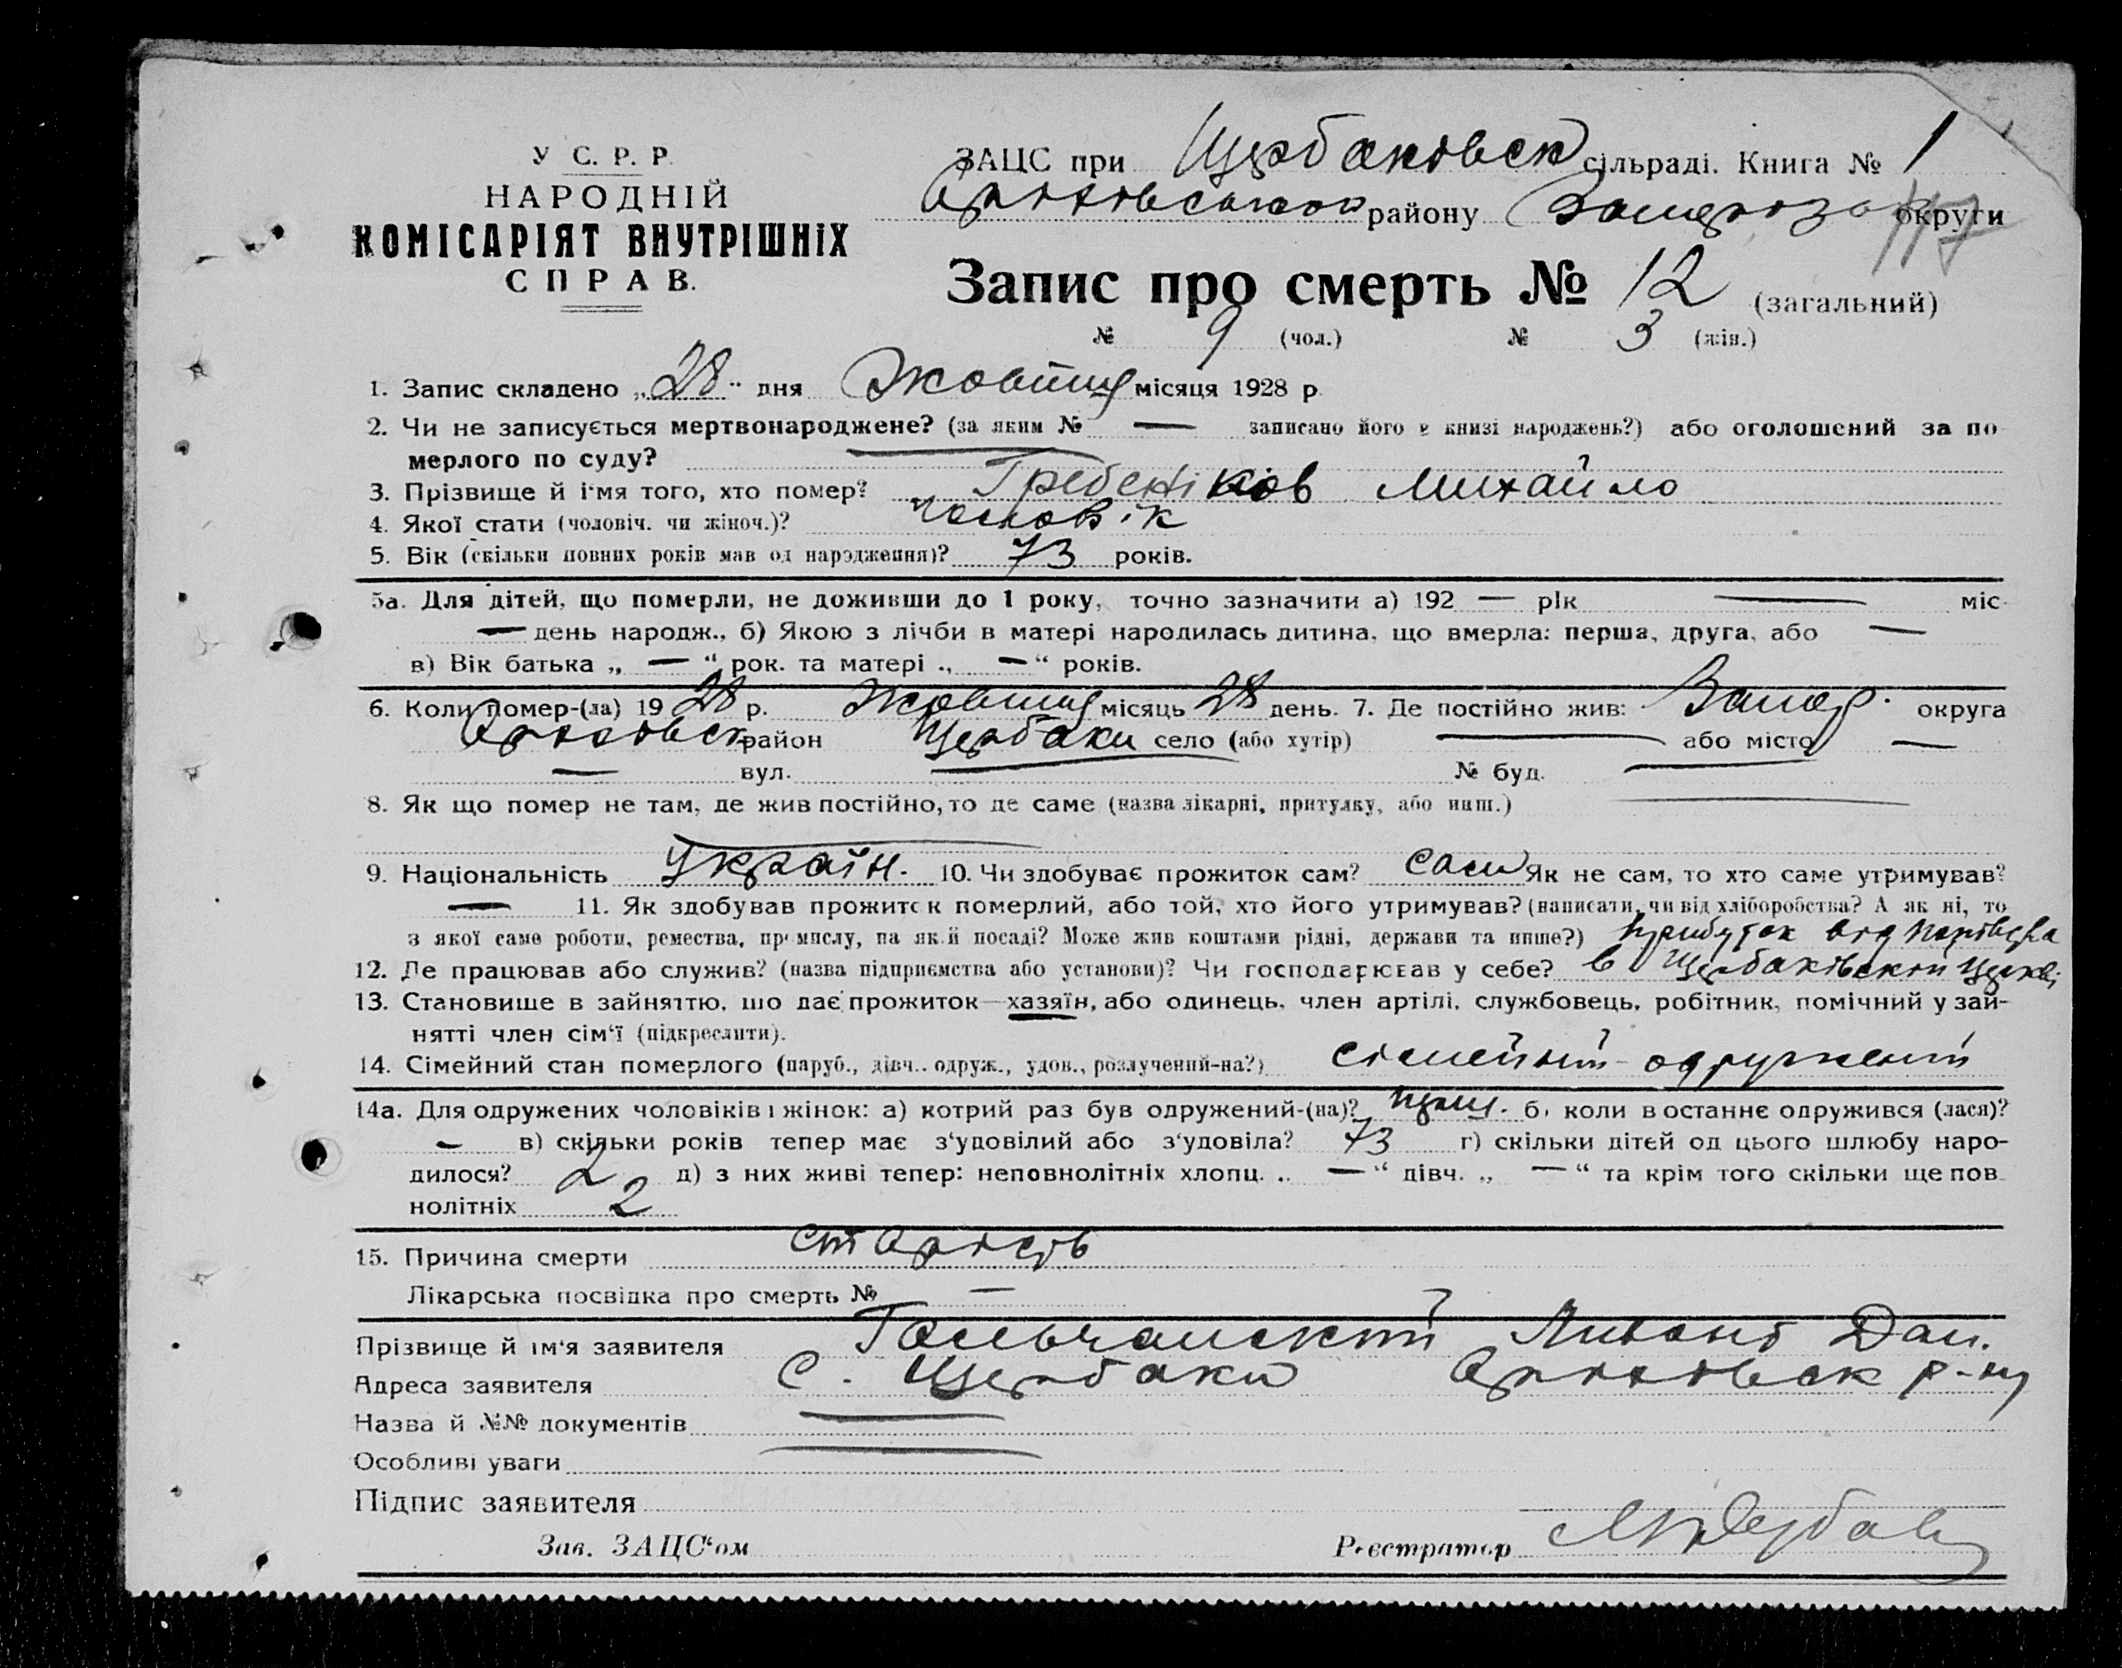 У С. Р. Р.
НАРОДНІЙ
КОМІСАРІЯТ ВНУТРІШНІХ
СПРАВ.
ЗАЦС при Щербаковск сільраді. Книга № 1
району Запороз округи
117
Запис про смерть № 12 (загальний)
№ 9 (чол.) № 3 (жін.)
1. Запис складено „28“ дня Жовтня місяця 1928 р.
2. Чи не записується мертвонароджене? (за яким № — записано його в книзі народжень?) або оголошений за по-
мерлого по суду? —
3. Прізвище й ім'я того, хто помер? Гребеніков Михайло
4. Якої стати (чоловіч. чи жіноч.)? чоловік
5. Вік (скільки повних років мав од народження)? 73 років.
5а. Для дітей, що померли, не доживши до 1 року, точно зазначити а) 192 — рік — міс.
— день народж., б) Якою з лічби в матері народилась дитина, що вмерла: перша, друга, або —
в) Вік батька „ — “ рок. та матері „ — “ років.
6. Коли помер-(ла) 1928 р. Жовтня місяць 28 день. 7. Де постійно жив: Запор. округа
Оріховск район Щербаки село (або хутір) — або місто —
— вул. — № буд. —
8. Як що помер не там, де жив постійно, то де саме (назва лікарні, притулку, або инш.) —
—
9. Національність Україн. 10. Чи здобуває прожиток сам? сам Як не сам, то хто саме утримував?
— 11. Як здобував прожиток померлий, або той, хто його утримував? (написати, чи від хліборобства? А як ні, то
з якої саме роботи, ремества, промислу, на якій посаді? Може жив коштами рідні, держави та инше?) прибуток від
12. Де працював або служив? (назва підприємства або установи)? Чи господарював у себе? в Щербаківскій Церкві
13. Становище в зайняттю, що дає прожиток—хазяїн, або одинець, член артілі, службовець, робітник, помічний у зай-
нятті член сім'ї (підкреслити).
14. Сімейний стан померлого (паруб., дівч., одруж., удов., розлучений-на?) сімейний - одружений
14а. Для одружених чоловіків і жінок: а) котрий раз був одружений-(на)? перш. б) коли в останнє одружився (лася)?
— в) скільки років тепер має з'удовілий або з'удовіла? 73 г) скільки дітей од цього шлюбу наро-
дилося? 2 д) з них живі тепер: неповнолітніх хлопц. „ — “ дівч. „ — “ та крім того скільки ще пов-
нолітніх 2
15. Причина смерти старость
Лікарська посвідка про смерть № —
Прізвище й ім'я заявителя Дан.
Адреса заявителя с. Щербаки Оріховск р-ну
Назва й №№ документів —
Особливі уваги —
Підпис заявителя
Зав. ЗАЦС'ом Реєстратор